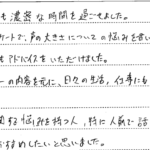 も濃密な時間を過ごせました。
ケートで、声の大きさについての悩みを書い
もアドバイスをいただけました。
ーの内容を元に、日々の生活、仕事にも
関する悩みを持つ人、特に人前で話
おすすめしたいと思いました。